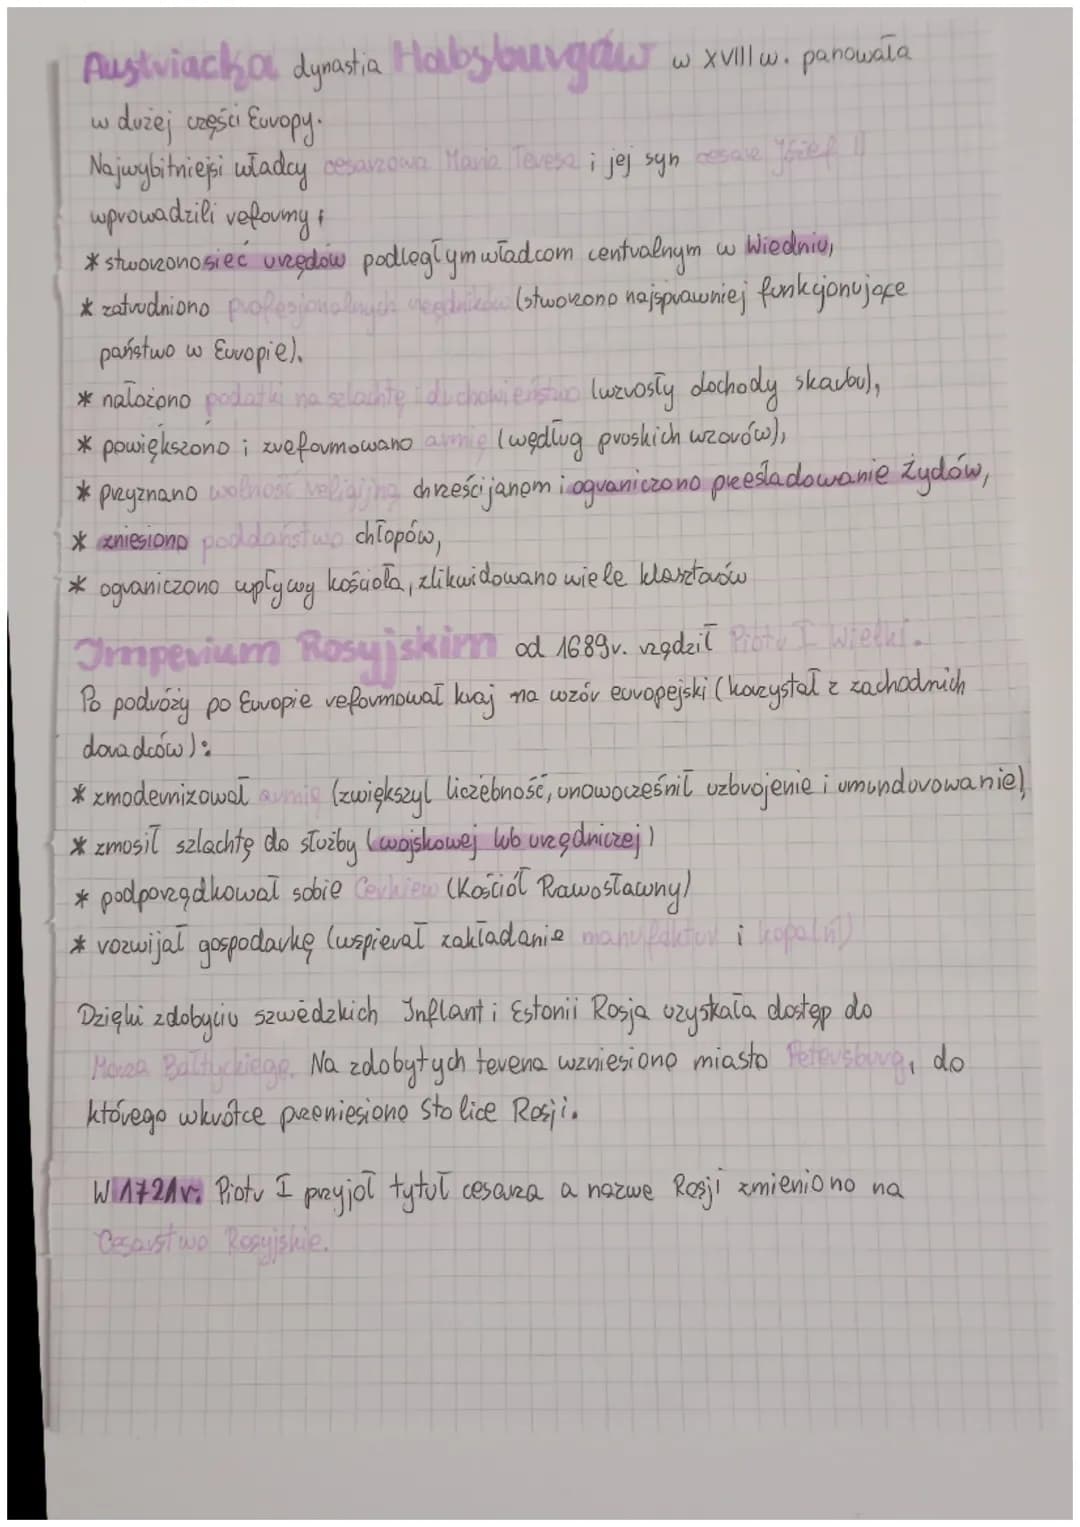 Austriacka dynastia Habsburgów w XVIII w. panowała
w dużej części Europy.
Najwybitniejsi władcy cesarzowa Maria Teresa i jej syn cesarz Józef II
wprowadzili reformy:
* stworzono sieć urzędów podległym władcom centralnym w Wiedniu,
* zatrudniono profesjonalnych urzędników (stworzono najsprawniej funkcjonujące
państwo w Europie).
* nałożono podatki na szlachtę i duchowieństwo (wzrosły dochody skarbu),
* powiększono i zreformowano armię (według pruskich wzorów),
* przyznano wolność religijną chrześcijanom i ograniczono prześladowanie Żydów,
* zniesiono poddaństwo chłopów,
* ograniczono wpływy kościoła, zlikwidowano wiele klasztorów
Imperium Rosyjskim od 1689r. rządził Piotr I Wielki.
Po podróży po Europie reformował kraj na wzór europejski (korzystał z zachodnich
doradców):
* zmodernizował armię (zwiększył liczebność, unowocześnił uzbrojenie i umundurowanie)
* zmosił szlachtę do służby (wojskowej lub urzędniczej)
* podporządkował sobie Cerkiew (Kościół Prawosławny)
* rozwijał gospodarkę (wspierał zakładanie manufaktur i kopalń)
Dzięki zdobyciu szwedzkich Inflant i Estonii Rosja uzyskała dostęp do
Morza Bałtyckiego. Na zdobytych terena wzniesiono miasto Petersburg, do
którego wkrótce przeniesiono stolice Rosji.
W 1721r. Piotr I przyjął tytuł cesarza a nazwe Rosji zmieniono na
Cesarstwo Rosyjskie.